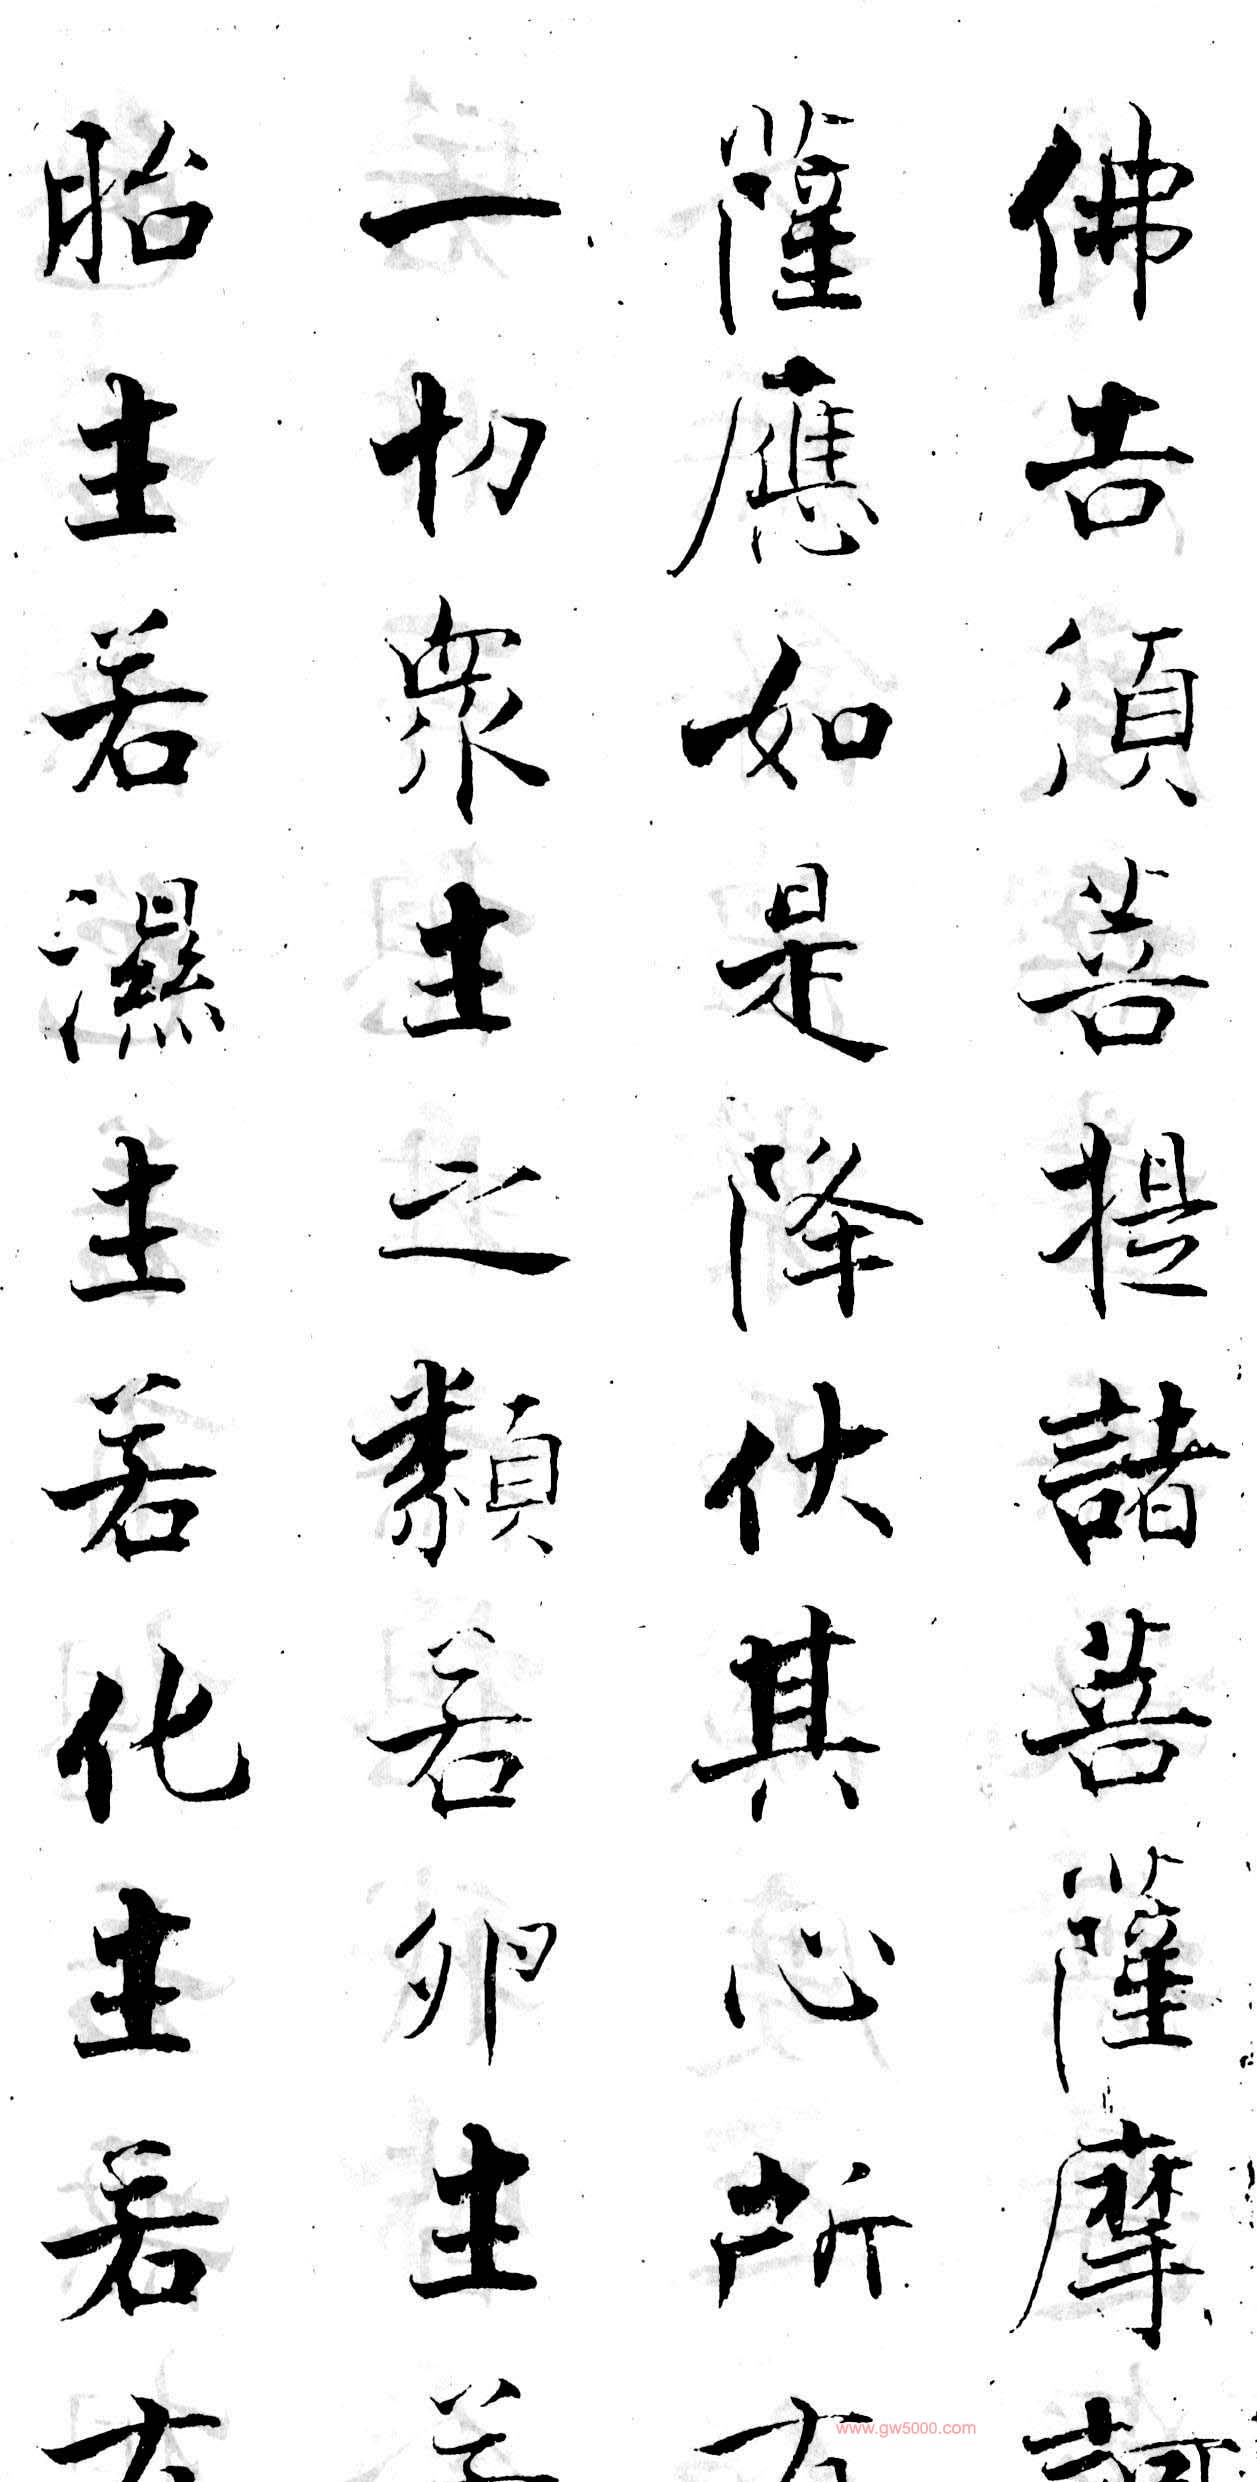 佛告須菩提諸菩薩摩訶
薩應如是降伏其心所有
一切眾生之類若卵生若
胎生若濕生若化生若有
www.gw5000.com